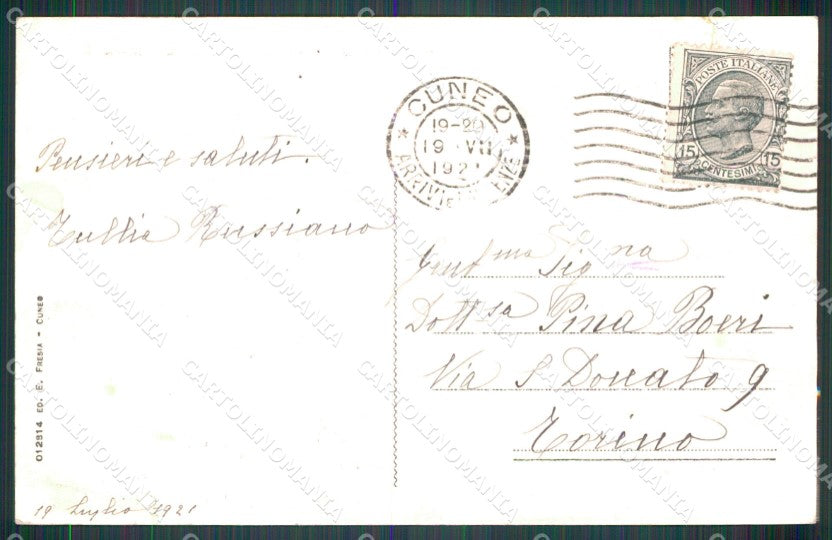 Pensieri e saluti.
Tullia Russiano
012814 ED. E. FRESIA - CUNEO
19 Luglio 1921
CUNEO
19-20
19 VII
1921
ARRIVI E
POSTE ITALIANE
15 CENTESIMI 15
Gent ma Sig na
Dott sa Pina Boeri
Via S Donato 9
Torino
CARTOLINOMANIA